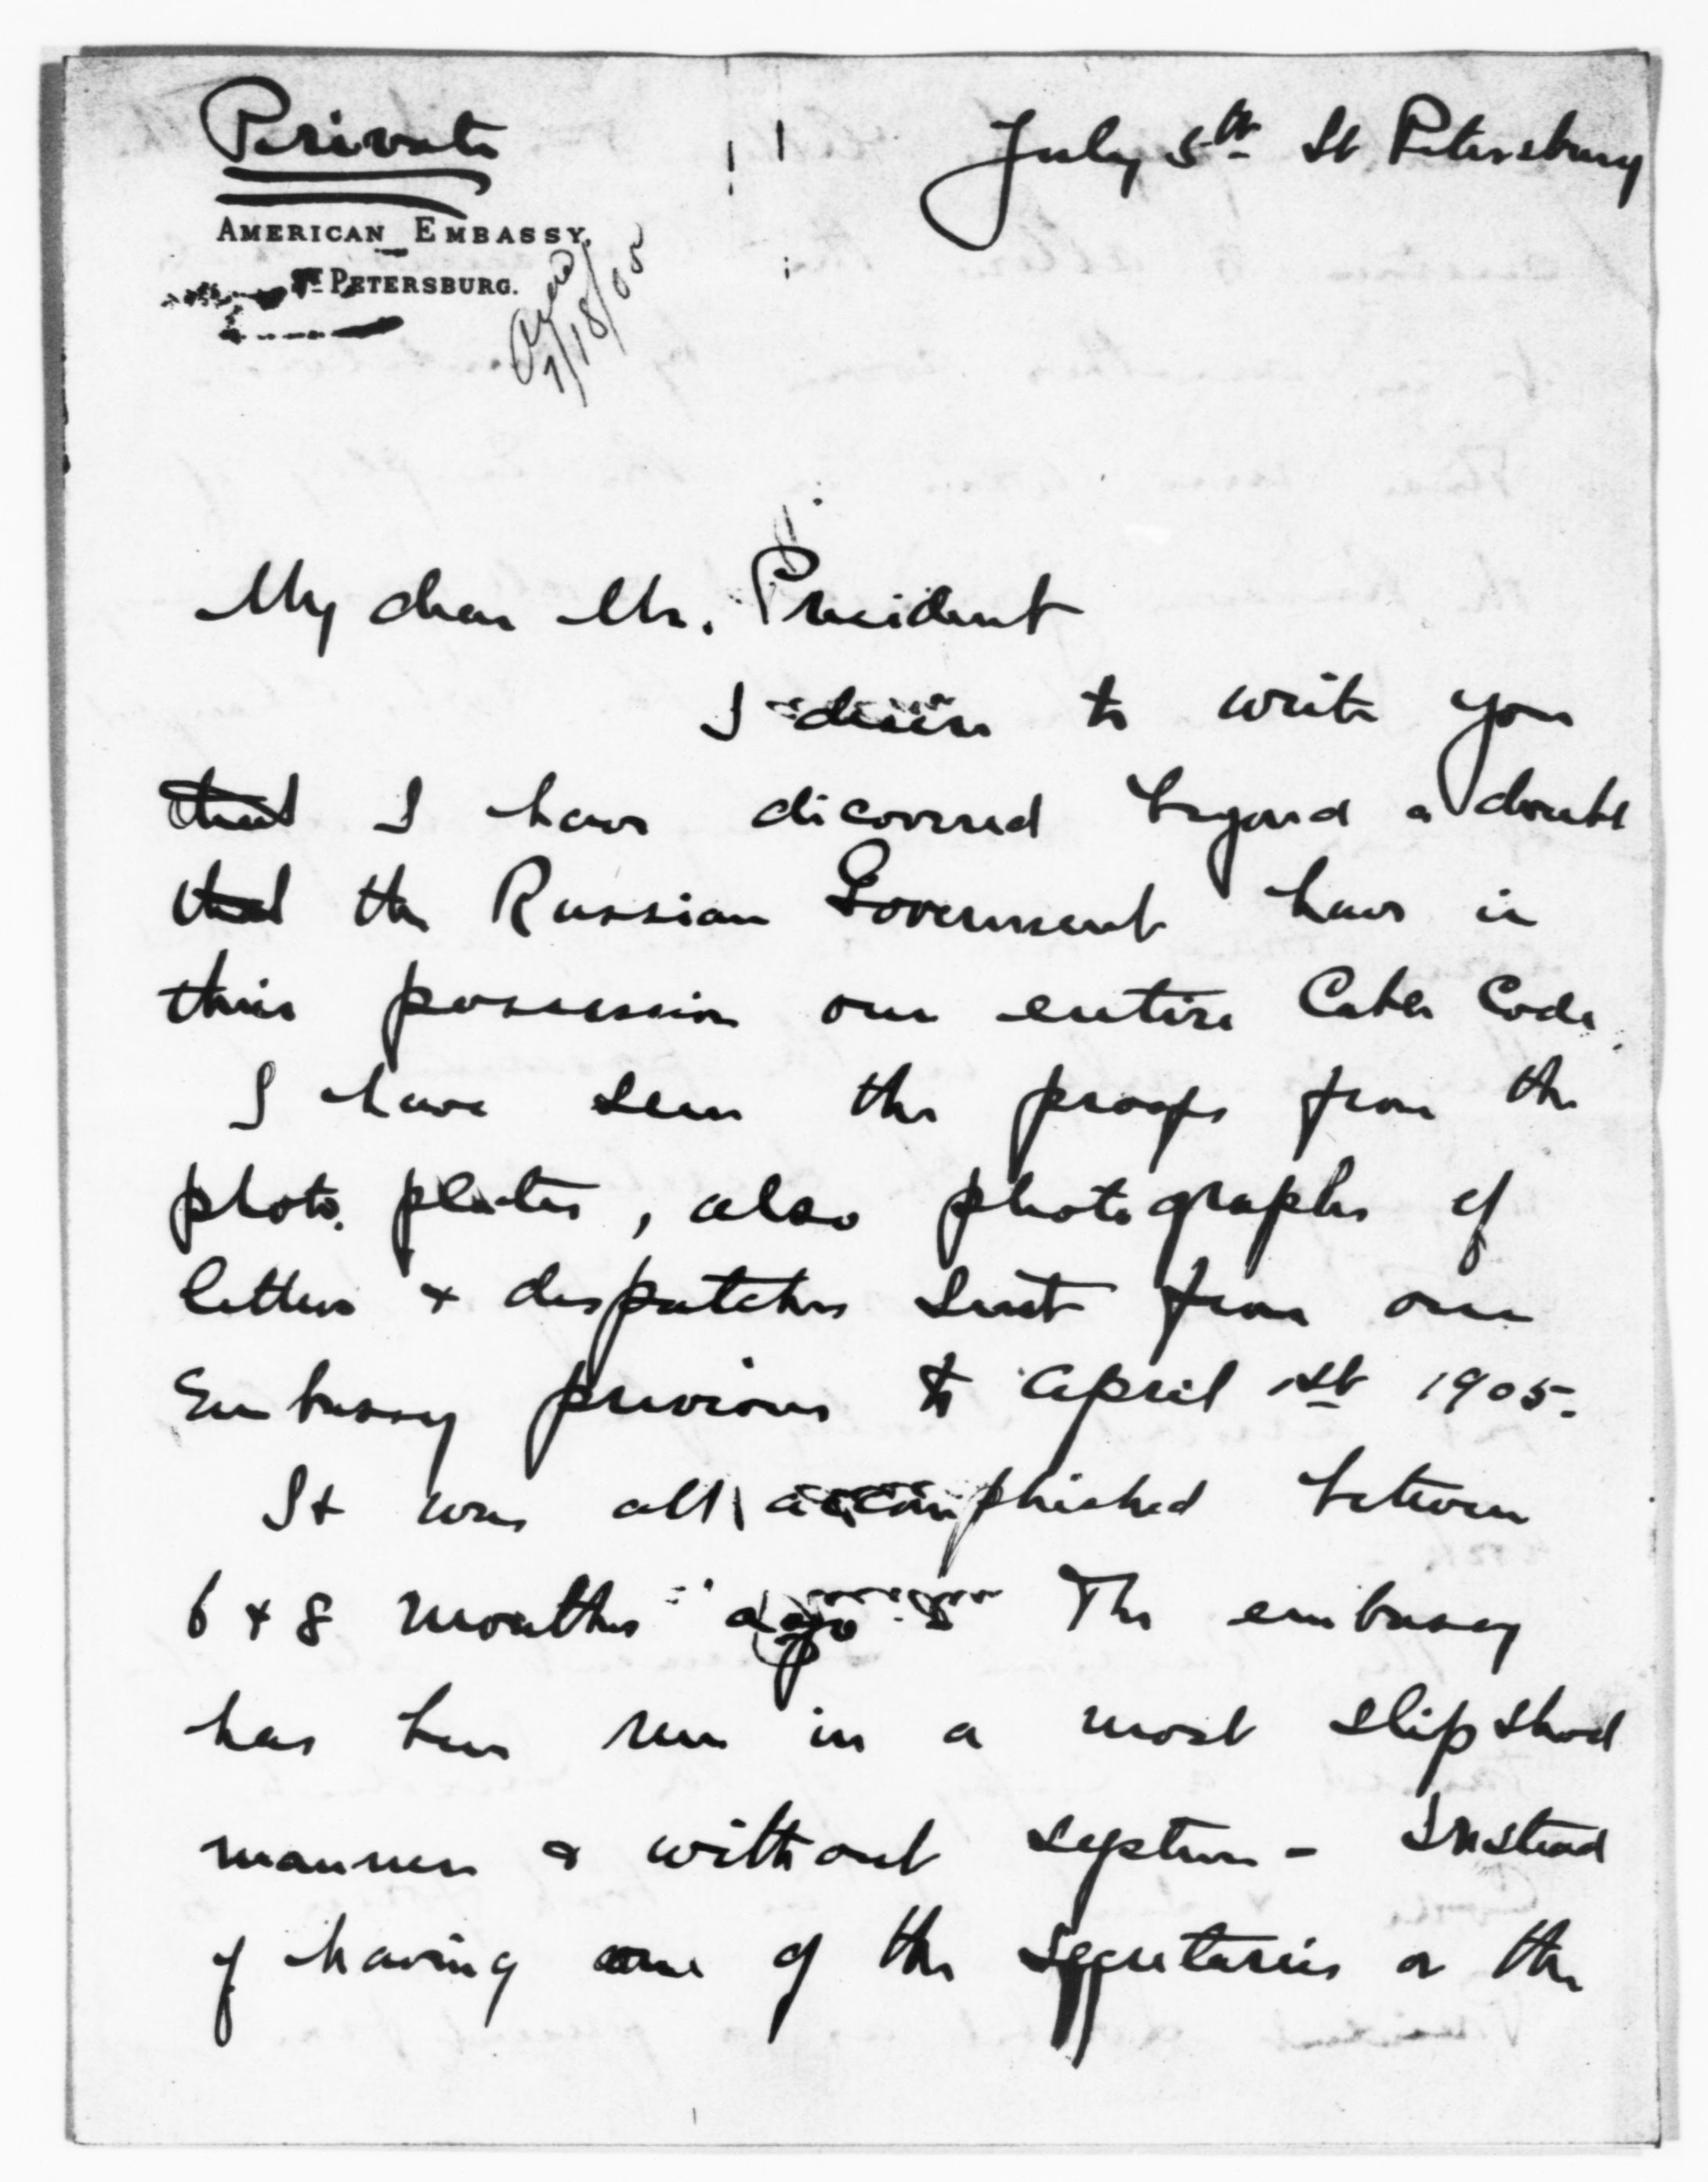 Private
July 5th St Petersburg
AMERICAN EMBASSY,
ST PETERSBURG.
7/18/05
My dear Mr. President
I desire to write you
that I have dicovered beyond a doubt
that the Russian Government have in
their possession our entire Cable Code.
I have seen the proofs from the
photo. plates, also photographs of
letters & despatches sent from our
Embassy previous to April 1st 1905.
It was all accomplished between
6 & 8 months ago. The embassy
has been run in a most slipshod
manner & without system - Instead
of having one of the secretaries or the